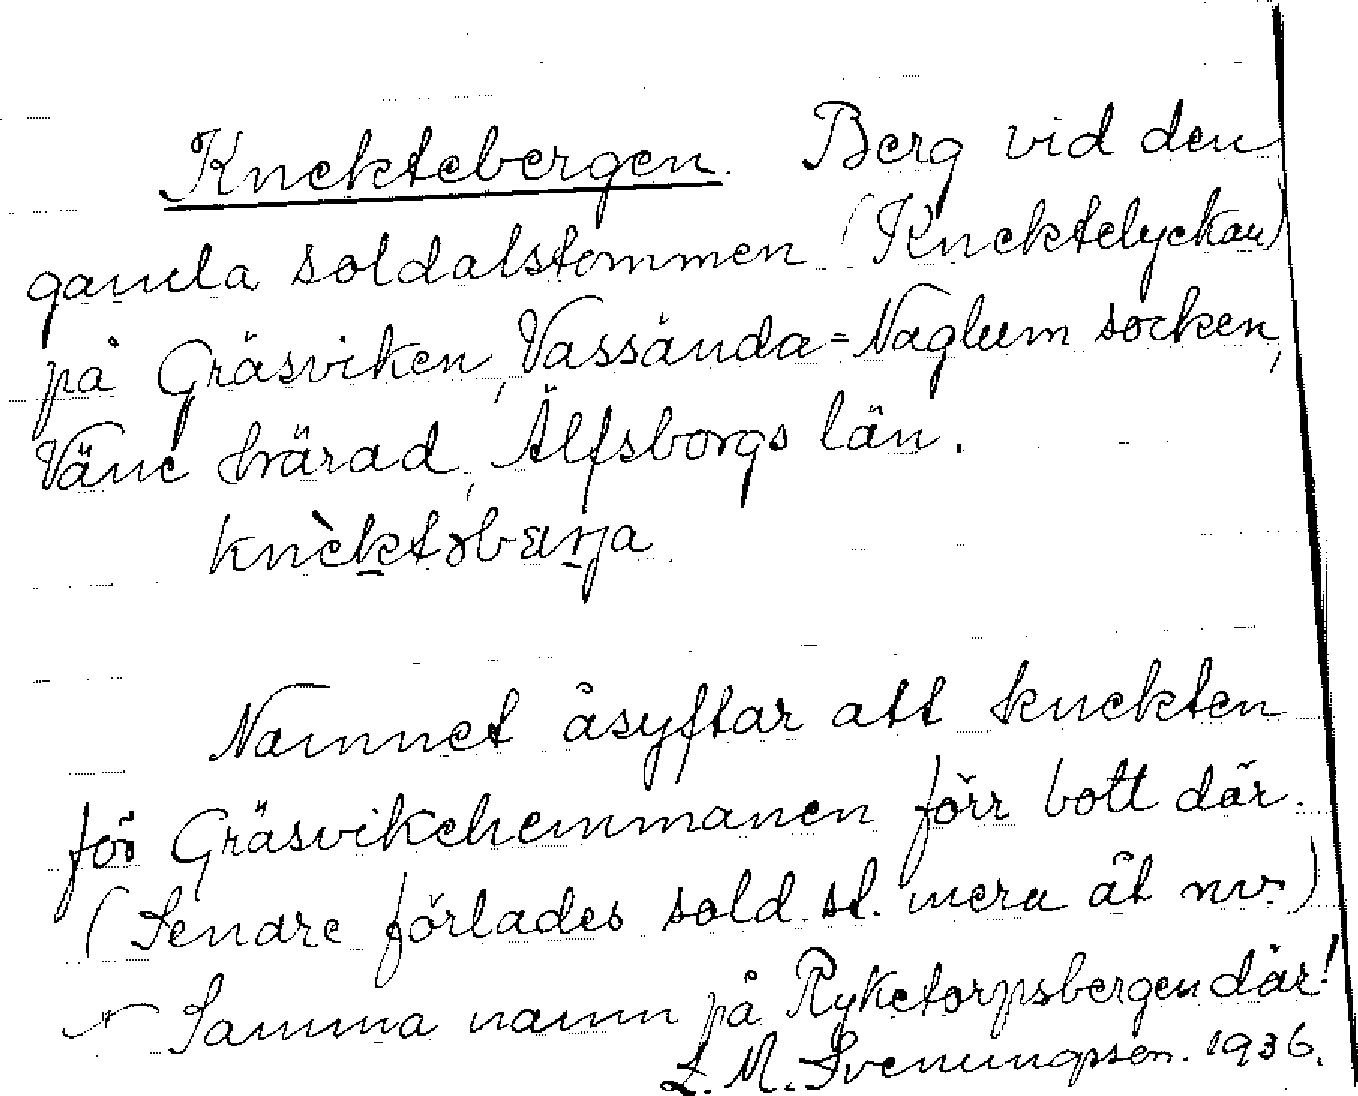 Knektebergen. Berg vid den
gamla soldatstommen (Knektelyckan)
på Gräsviken, Vassända=Naglum socken,
Väne härad, Älfsborgs län.
knèktəbærja
Namnet åsyftar att knekten
för Gräsvikehemmanen förr bott där.
(Senare förlades sold. st. mera åt nv.)
Samma namn på Ryketorpsbergen där!
L. M. Svenungsson. 1936.